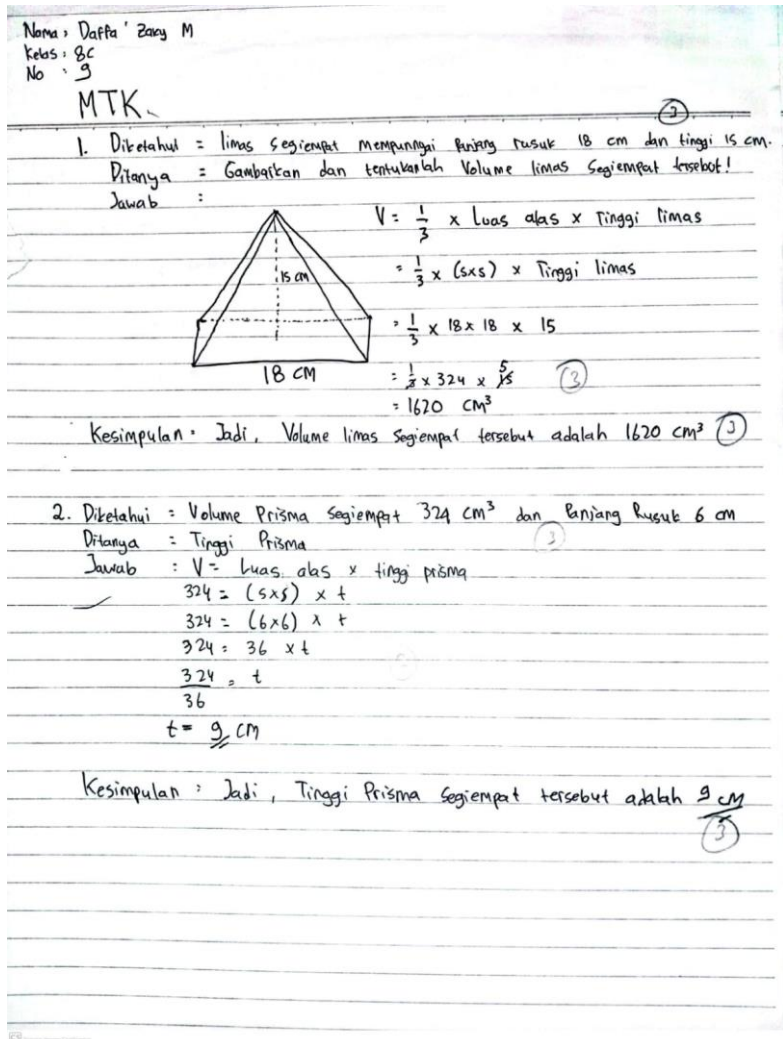 Nama : Daffa' Zaky M
Kelas : 8C
No : 9
MTK
3
1. Diketahui = limas segiempat mempunyai Panjang rusuk 18 cm dan tinggi 15 cm.
Ditanya = Gambarkan dan tentukanlah Volume limas Segiempat tersebut!
Jawab :
15 cm
18 CM
V = 1/3 x Luas alas x Tinggi limas
= 1/3 x (sxs) x Tinggi limas
= 1/3 x 18 x 18 x 15
= 1/3 x 324 x 15 5
3
= 1620 CM³
Kesimpulan = Jadi, Volume limas Segiempat tersebut adalah 1620 cm³ 3
2. Diketahui = Volume Prisma Segiempat 324 cm³ dan Panjang Rusuk 6 cm
3
Ditanya = Tinggi Prisma
Jawab : V = Luas alas x tinggi prisma
324 = (sxs) x t
324 = (6x6) x t
324 = 36 x t
324/36 = t
t = 9 cm
Kesimpulan : Jadi, Tinggi Prisma Segiempat tersebut adalah 9 cm
3